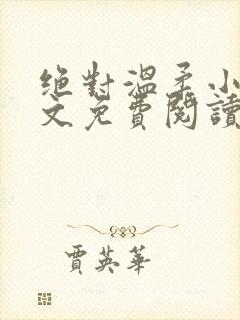 絕對溫柔小
文免費閱讀
賈英華